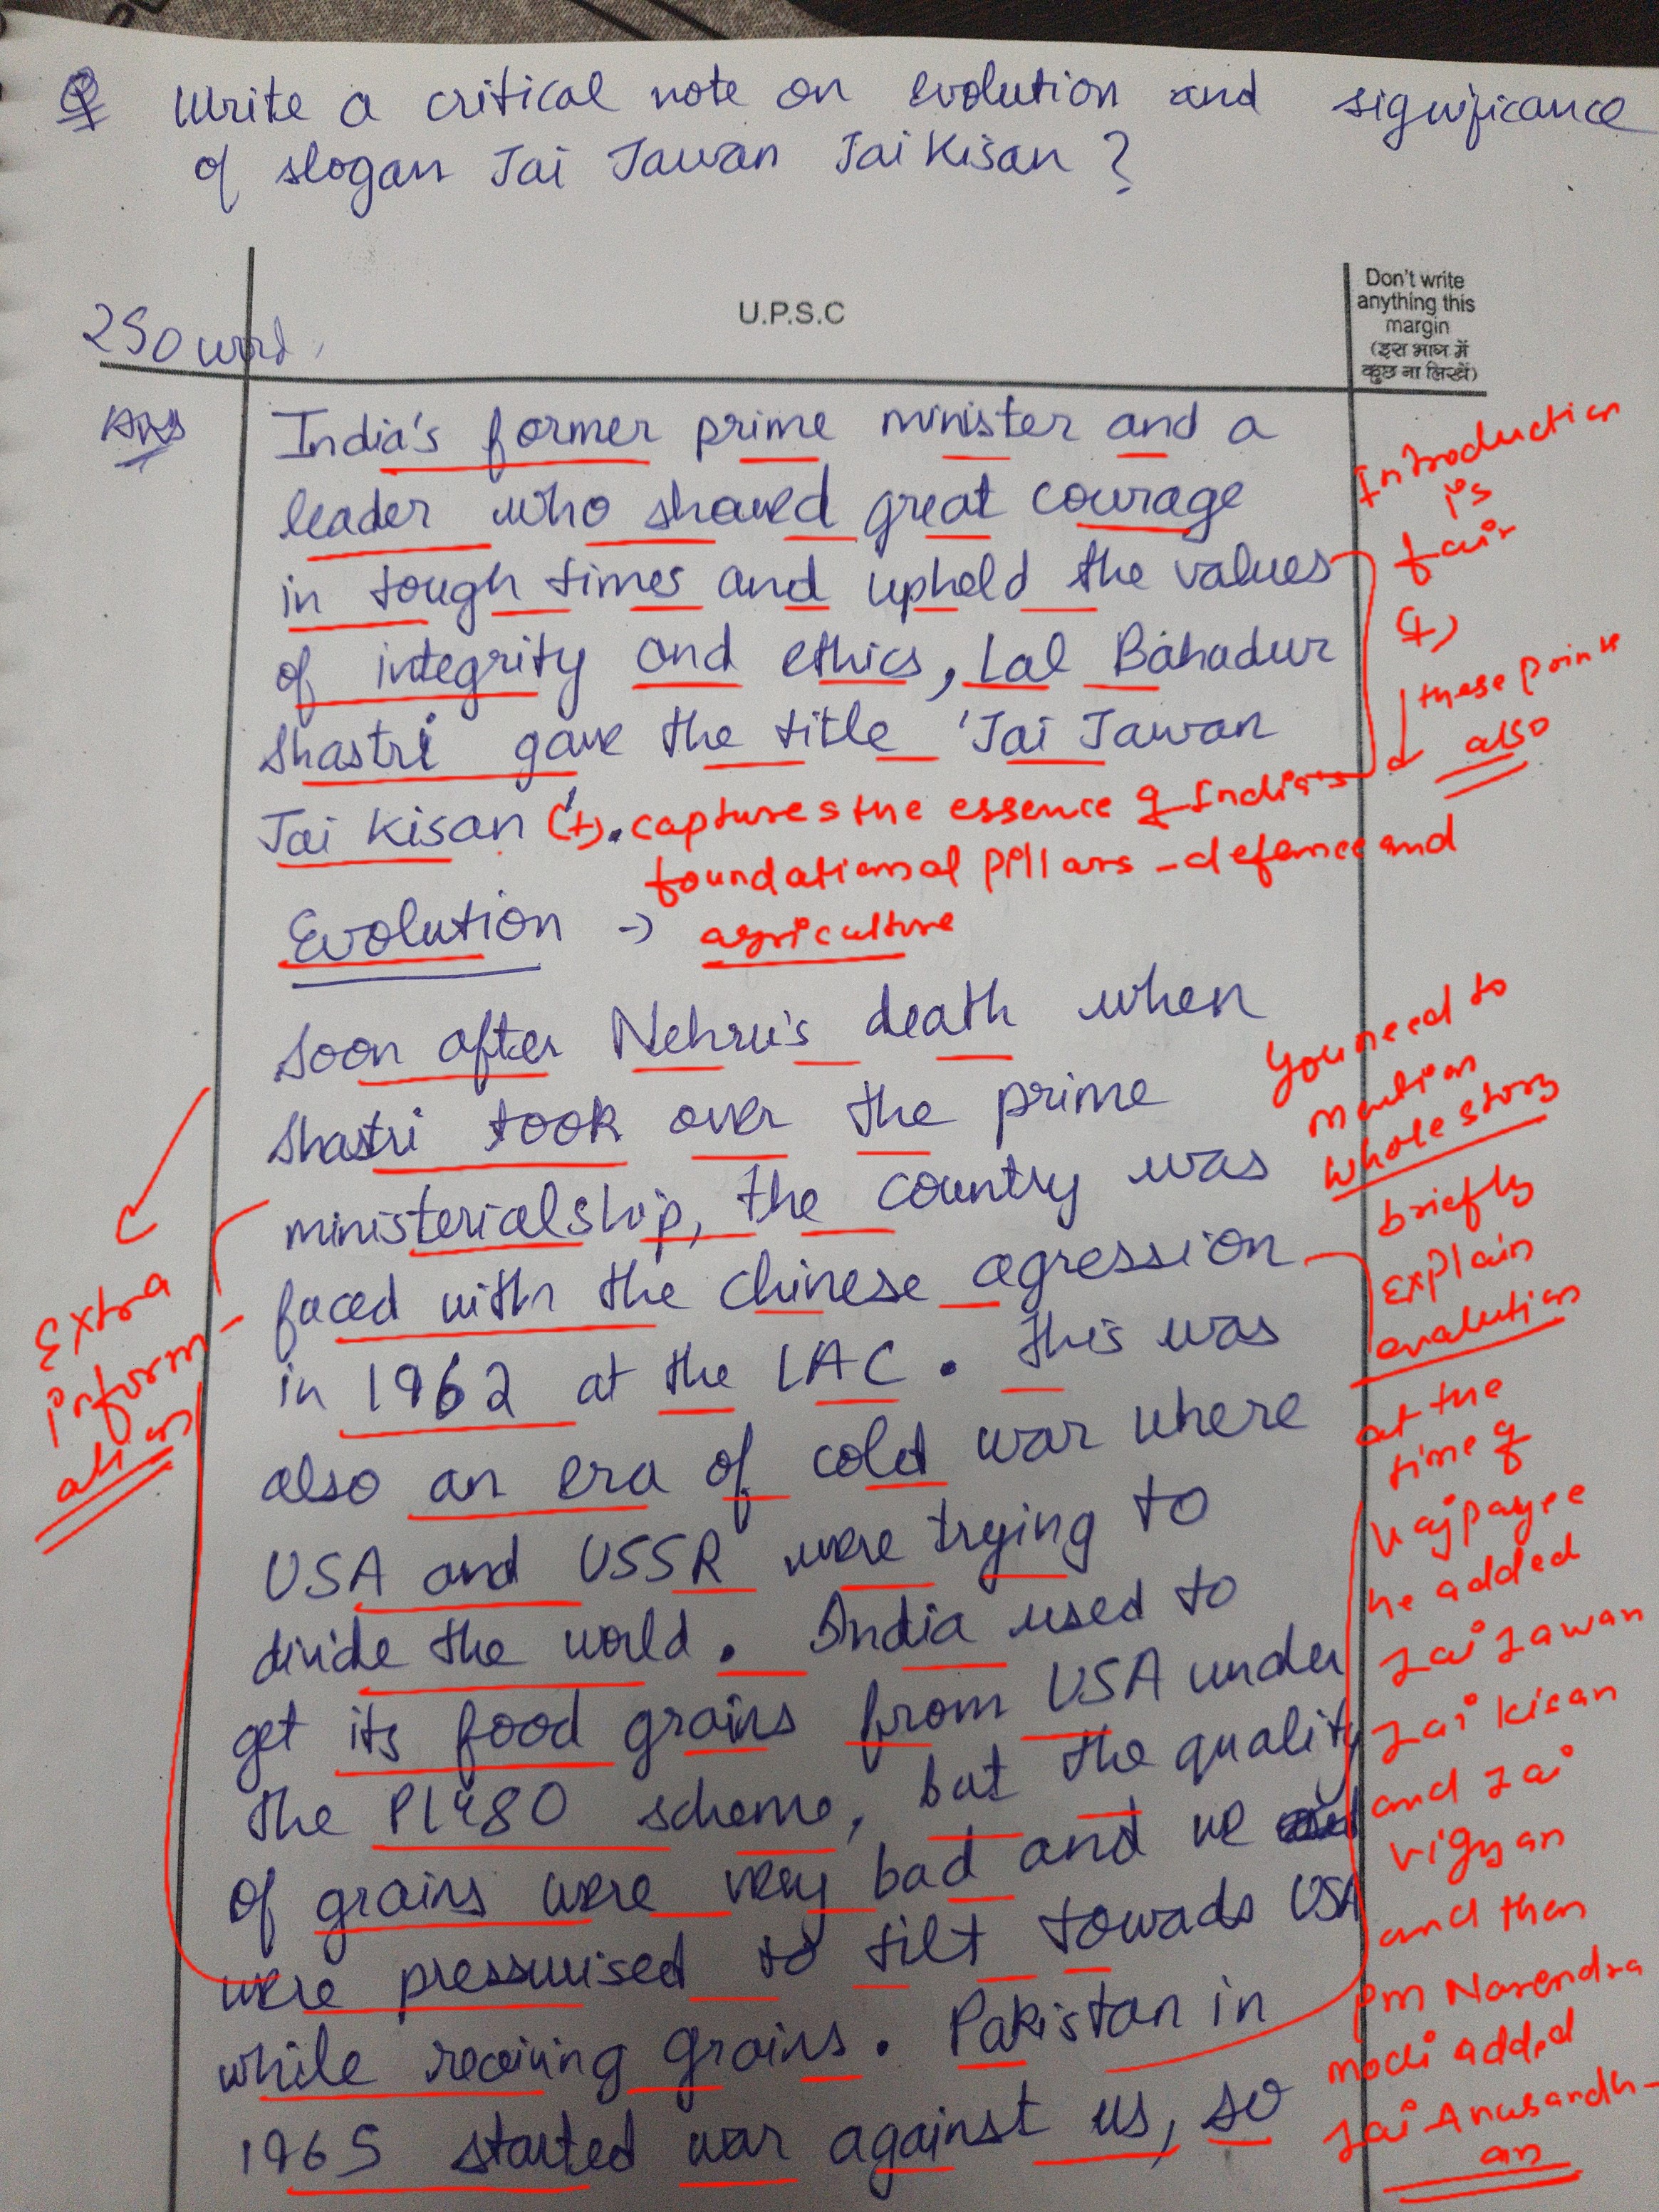 Q Write a critical note on evolution and significance
of slogan Jai Jawan Jai Kisan ?
U.P.S.C
Don't write
anything this
margin
(इस भाग में
कुछ ना लिखें)
250 word.
Ans
India's former prime minister and a
leader who showed great courage
in tough times and upheld the values
of integrity and ethics, Lal Bahadur
Shastri gave the title 'Jai Jawan
Jai Kisan'.
(+) captures the essence of India's
foundational pillars - defence and
agriculture
Introduction
is
fair
(+)
these points
also
Evolution →
Soon after Nehru's death when
Shastri took over the prime
ministerialship, the country was
faced with the Chinese agression
in 1962 at the LAC. This was
also an era of cold war where
USA and USSR were trying to
divide the world. India used to
get its food grains from USA under
the PL480 scheme, but the quality
of grains were very bad and we
were pressurised to tilt towads USA
while receiving grains. Pakistan in
1965 started war against us, so
Extra
inform-
ation
You need to
mention
whole story
briefly
explain
evalution
at the
time of
Vajpayee
he added
Jai Jawan
Jai Kisan
and Jai
vigyan
and then
Pm Narendra
modi added
Jai Anusandh-
an